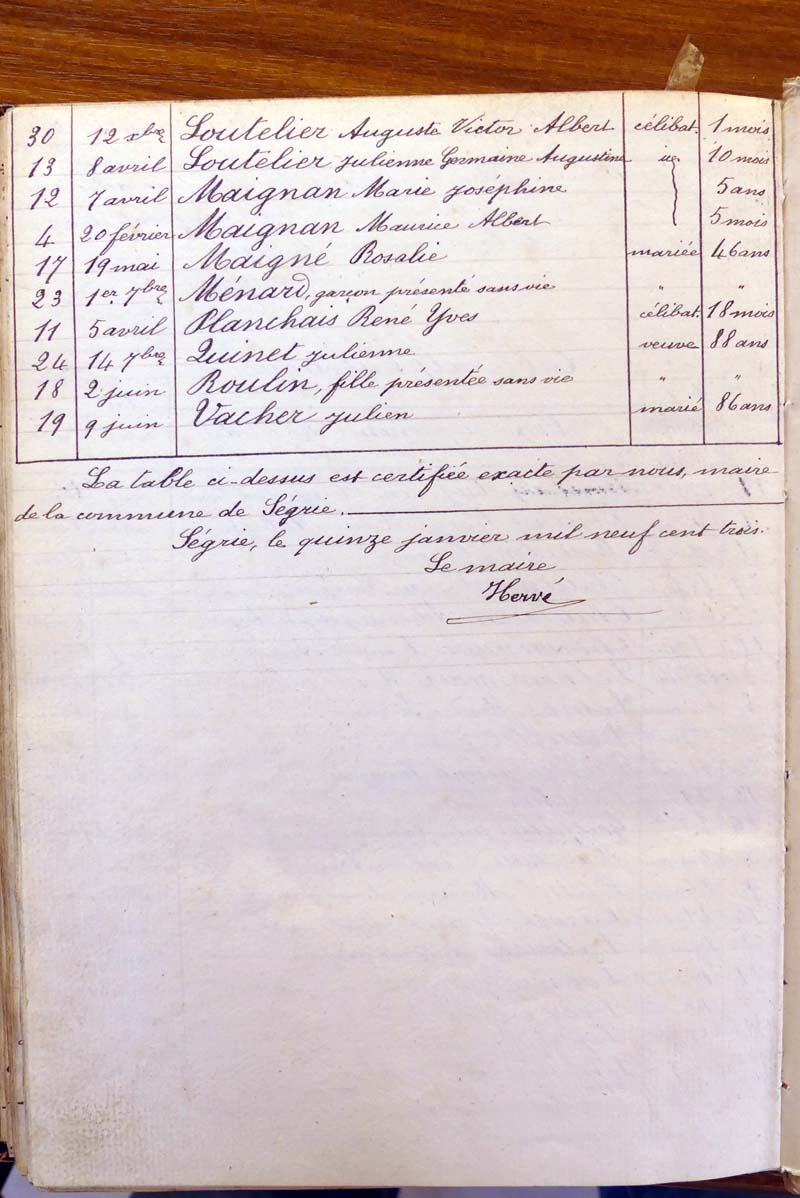 30 12 xbre Loutelier Auguste Victor Albert célibat. 1 mois
13 8 avril Loutelier Julienne Germaine Augustine id. 10 mois
12 7 avril Maignan Marie Joséphine 5 ans
4 20 février Maignan Maurice Albert 5 mois
17 19 mai Maigné Rosalie mariée 46 ans
23 1er 7bre Ménard, garçon présenté sans vie " "
11 5 avril Planchais René Yves célibat. 18 mois
24 14 7bre Quinet Julienne veuve 88 ans
18 2 juin Roulin, fille présentée sans vie " "
19 9 juin Vacher Julien marié 86 ans
La table ci-dessus est certifiée exacte par nous, maire
de la commune de Ségrie.
Ségrie, le quinze janvier mil neuf cent trois.
Le maire
Hervé